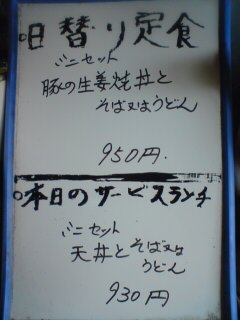 日替り定食
ミニセット
豚の生姜焼丼と
そば又はうどん
950円
本日のサービスランチ
ミニセット
天丼とそば又は
うどん
930円